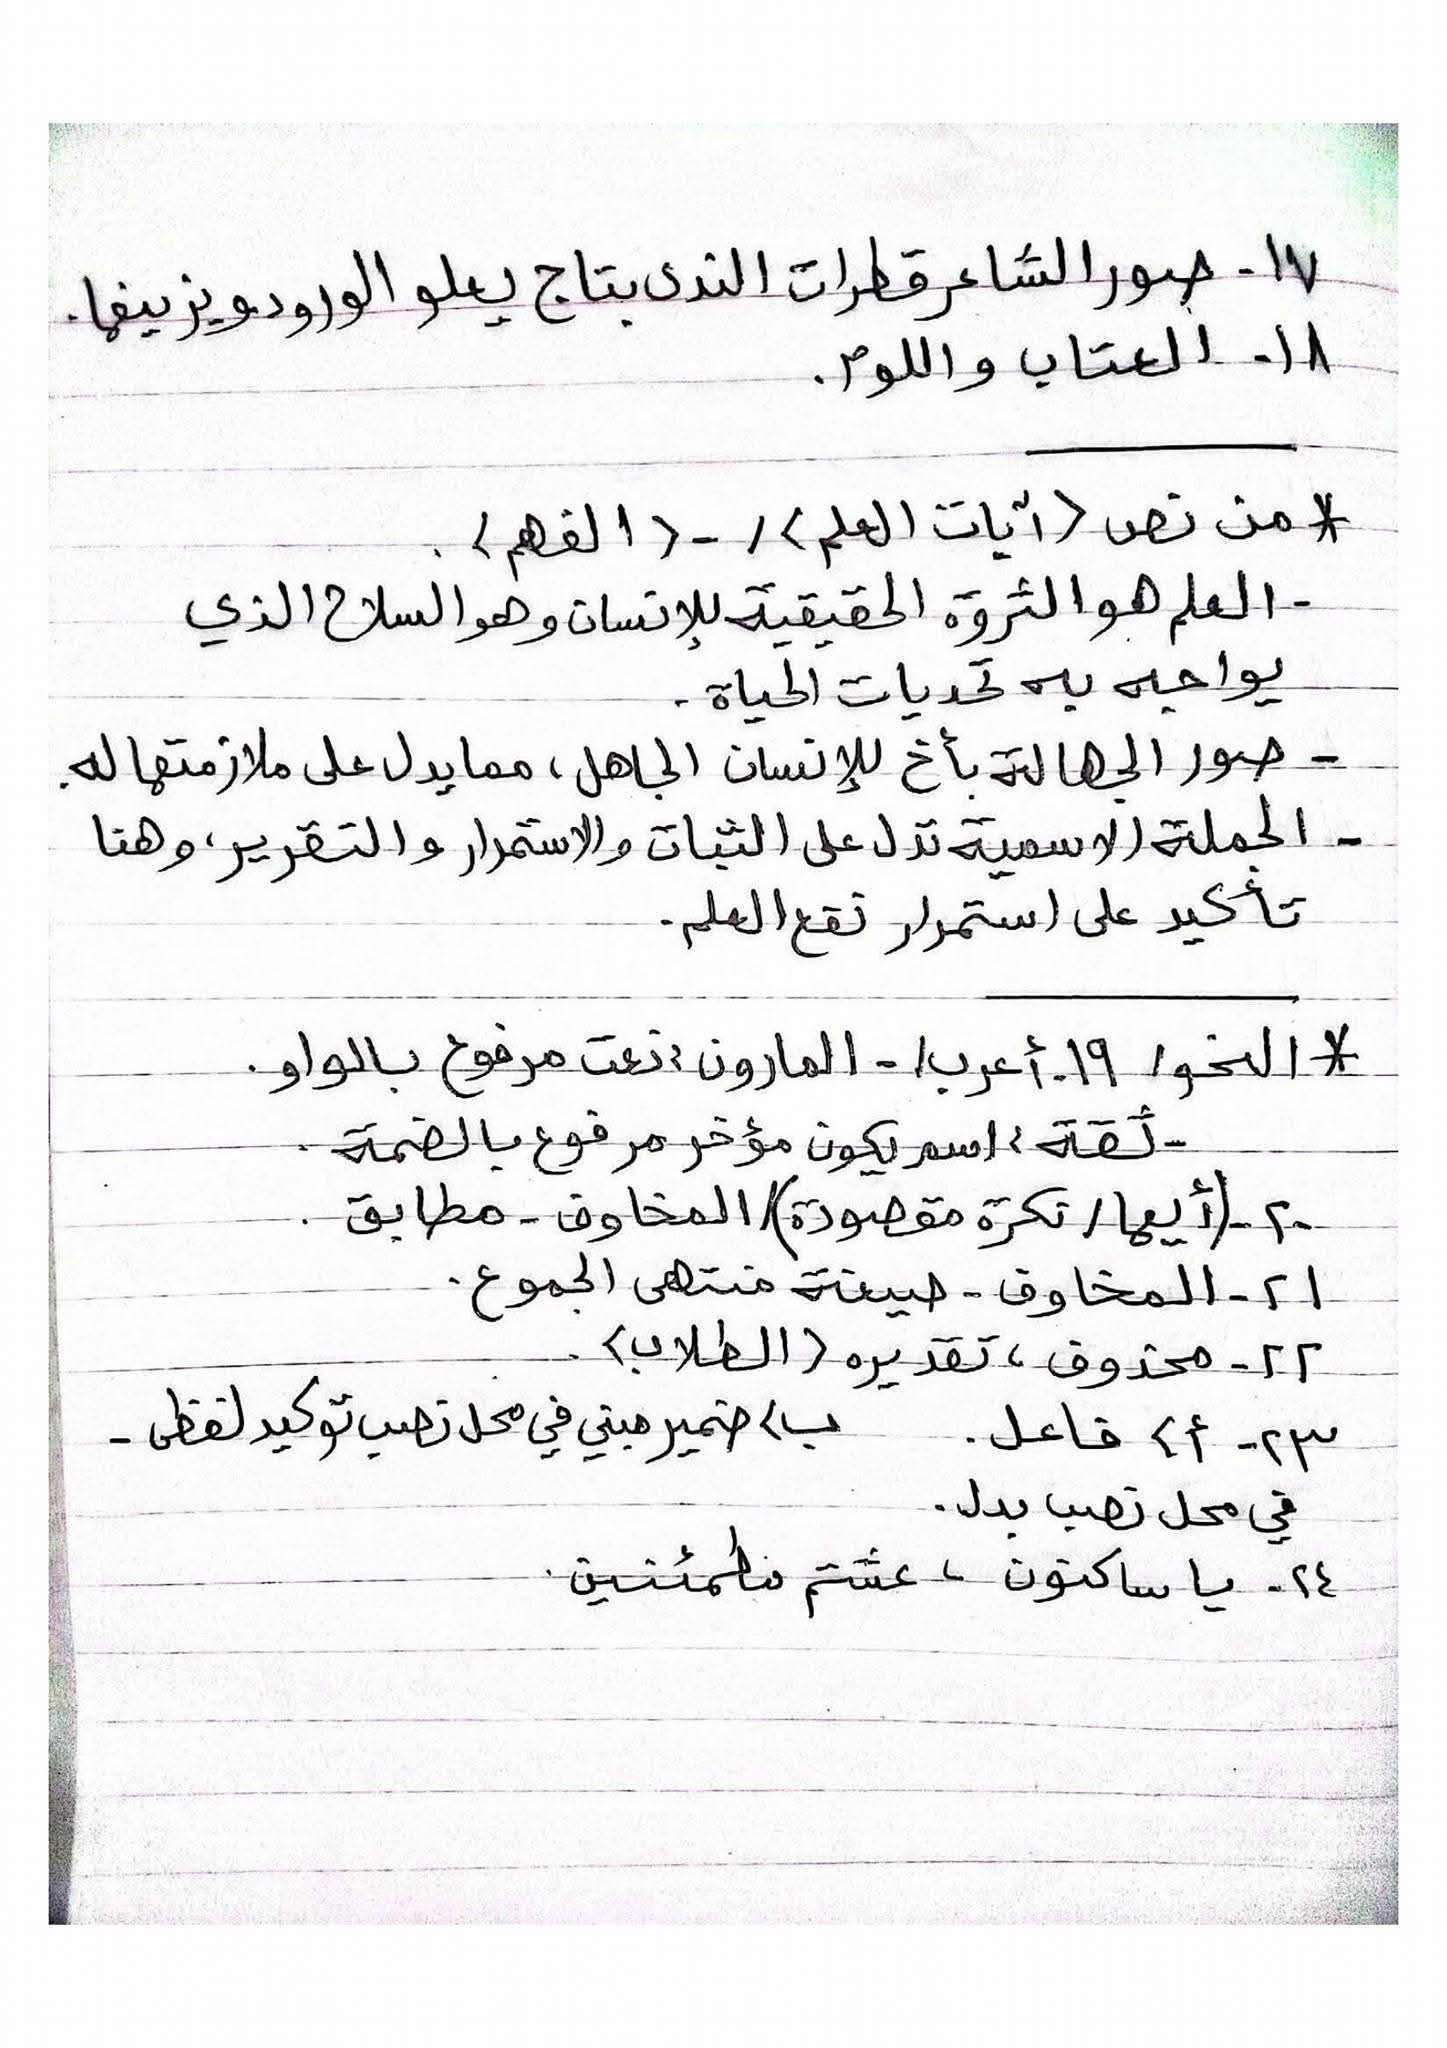 ١٧- صور الشاعر قطرات الندى بتاج يعلو الورود ويزينها.
١٨- العتاب واللوم.
* من نص (آيات العلم)/ - (الفهم).
- العلم هو الثروة الحقيقية للإنسان وهو السلاح الذي
يواجه به تحديات الحياة.
- صور الجهالة بأخ للإنسان الجاهل، مما يدل على ملازمتها له.
- الجملة الاسمية تدل على الثبات والاستمرار والتقرير، وهنا
تأكيد على استمرار نفع العلم.
* النحو/ ١٩- أعرب/ - المارون: نعت مرفوع بالواو.
- ثقة: اسم يكون مؤخر مرفوع بالضمة.
٢٠- (أيها/ نكرة مقصودة)/ المخاوف - مطابق.
٢١- المخاوف - صيغة منتهى الجموع.
٢٢- محذوف، تقديره (الطلاب).
٢٣- أ) فاعل. ب) ضمير مبني في محل نصب توكيد لفظي -
في محل نصب بدل.
٢٤- يا ساكنون، عشتم مطمئنين.